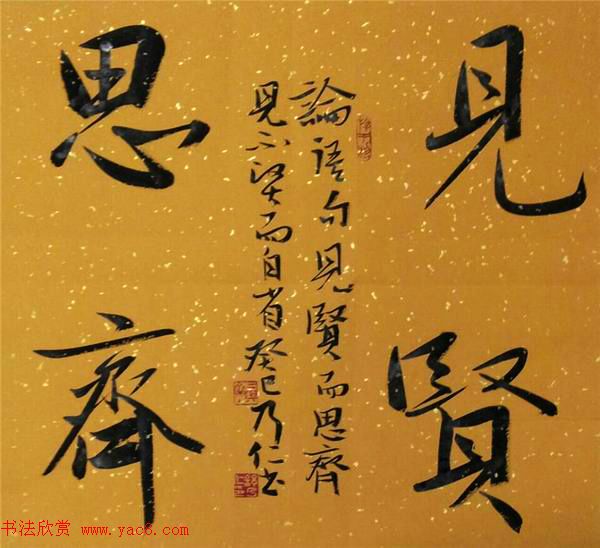 見賢
思齊
論語句見賢而思齊
見不賢而自省癸巳乃仁書
书法欣赏 www.yac8.com